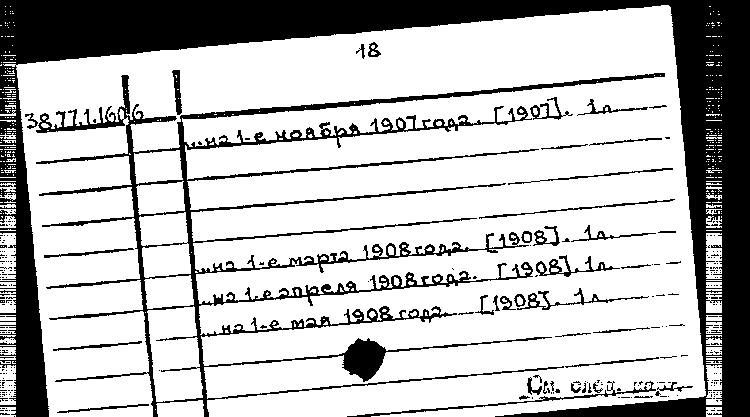 18
38.77.1.1606
...на 1-е ноября 1907 года. [1907]. 1л.
...на 1-е марта 1908 года. [1908]. 1л.
...на 1-е апреля 1908 года. [1908]. 1л.
...на 1-е мая 1908 года. [1908]. 1л.
См. след. карт.